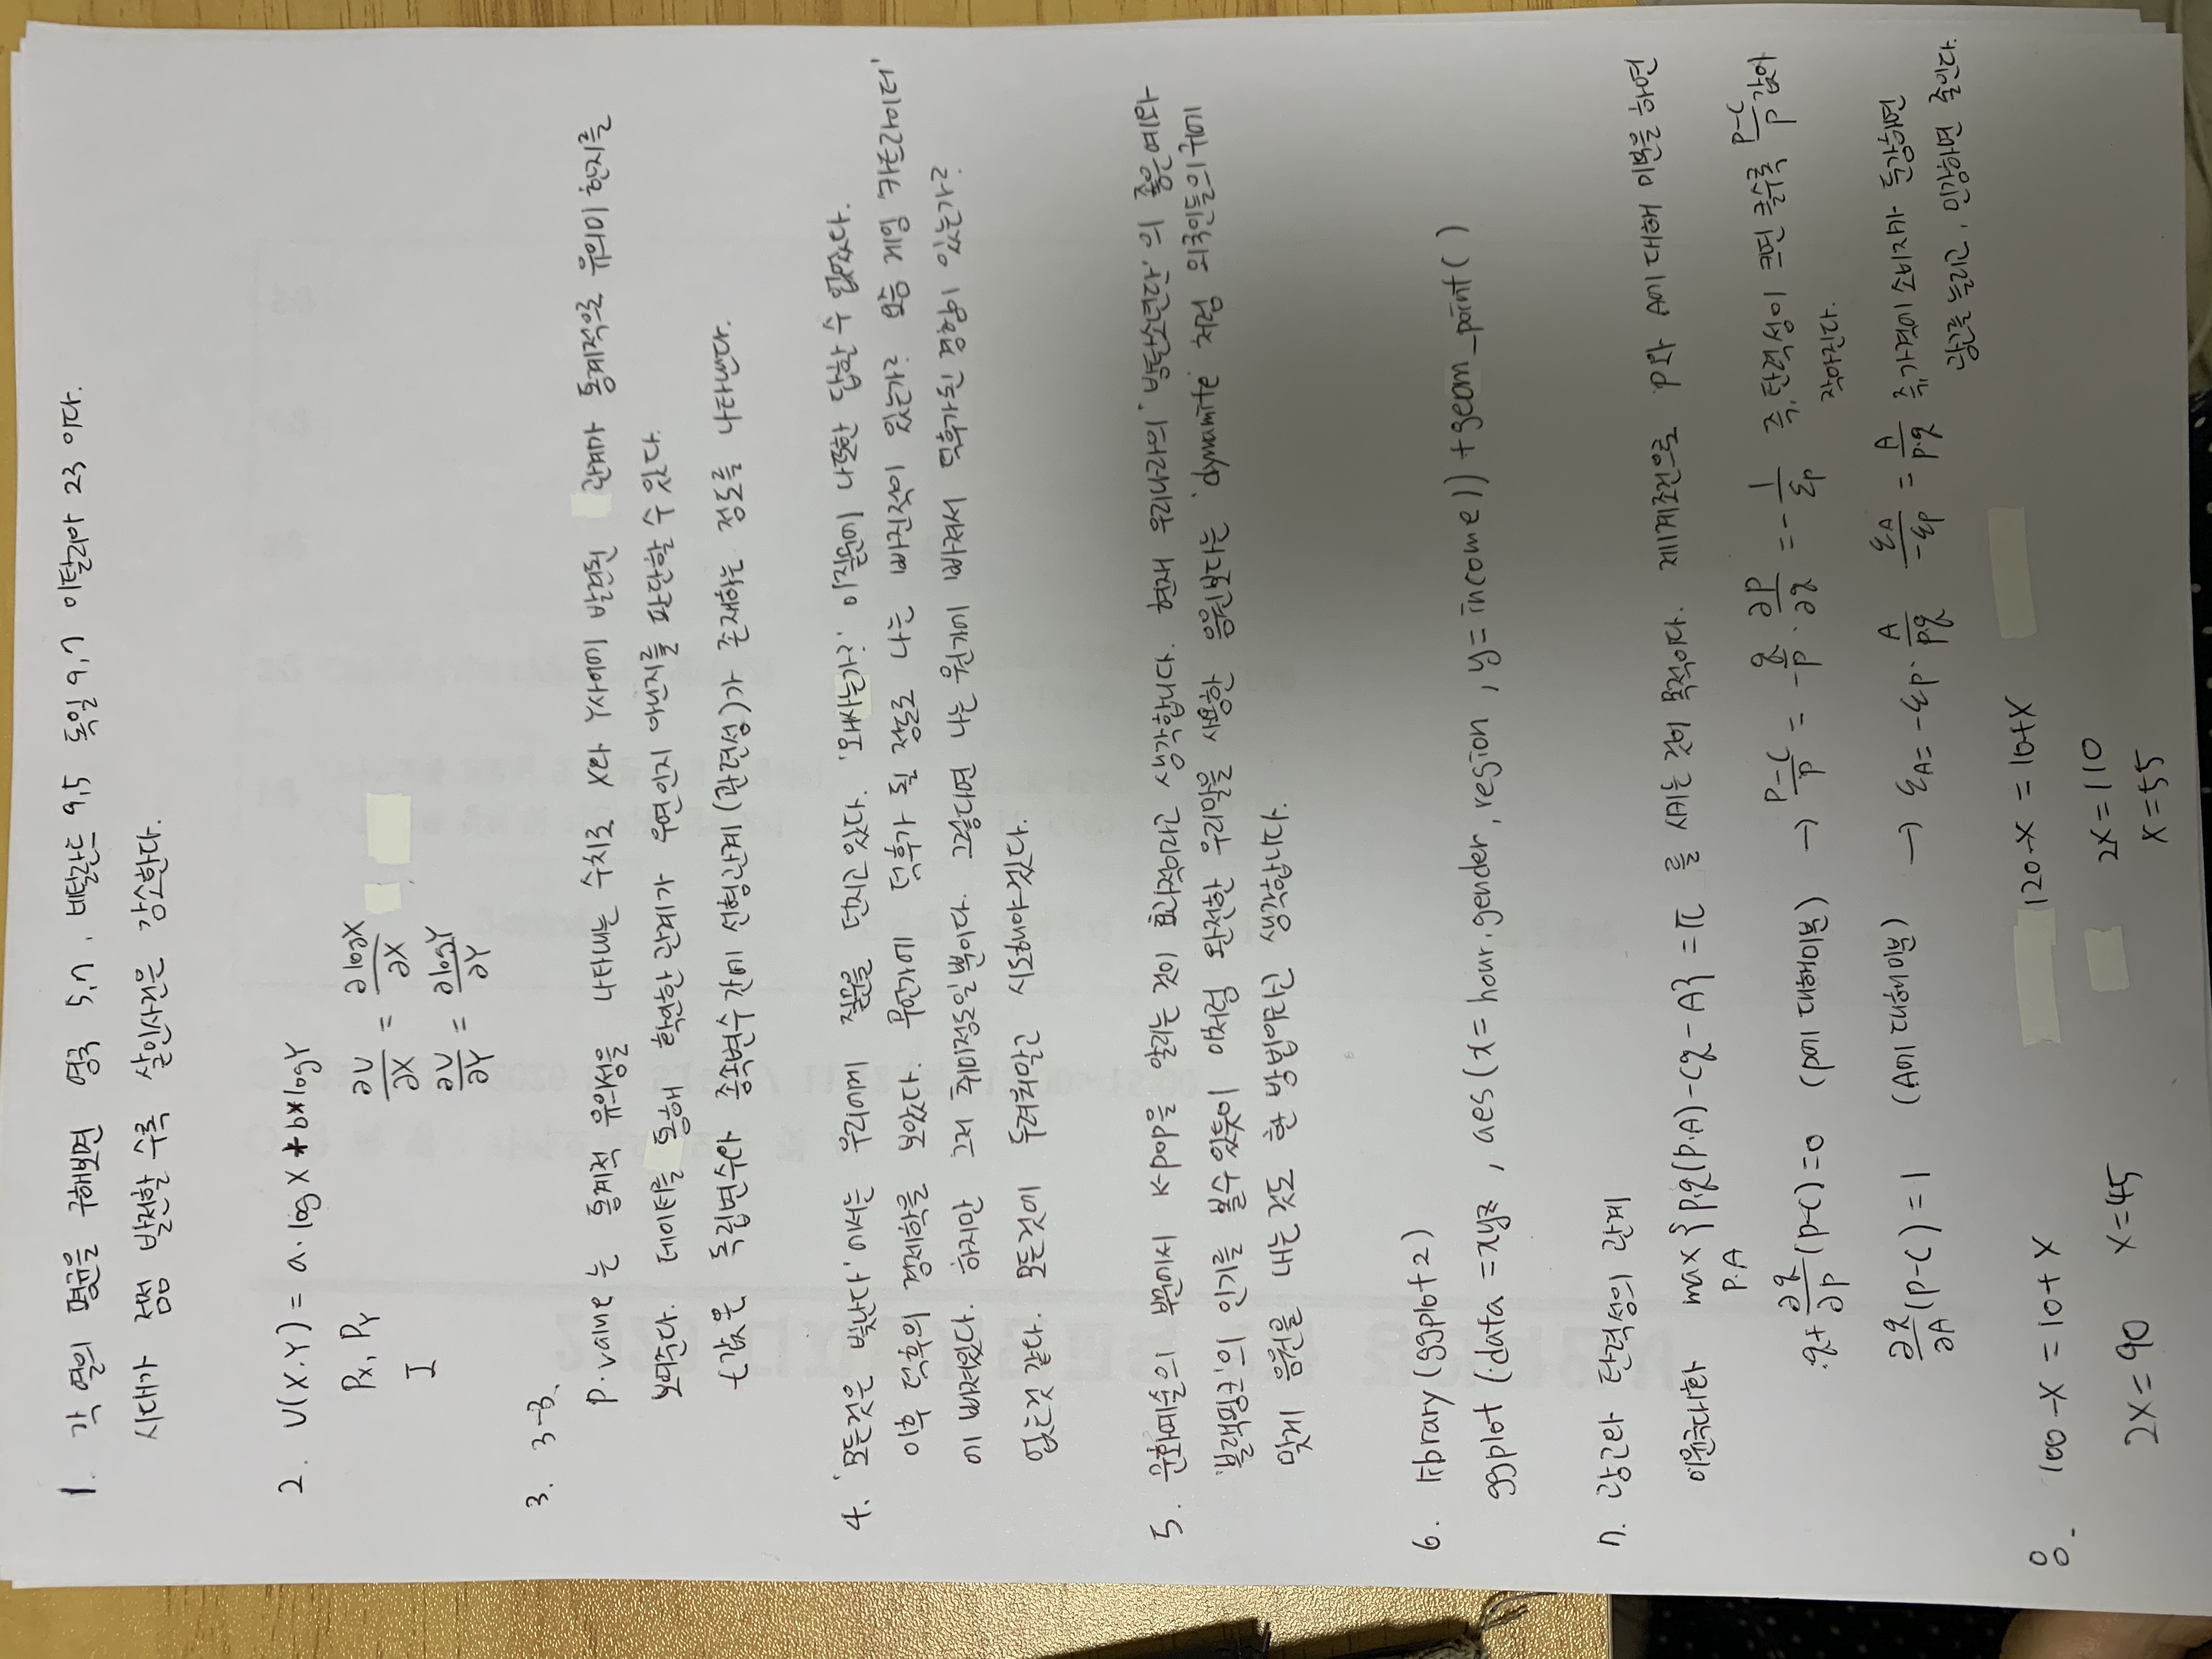 1. 각 열의 평균을 구해보면 영국 5,7, 네털란드 9,5 독일 9,7 이탈리아 23 이다.
시대가 점점 발전할 수록 살인사건은 감소한다.
2. U(X.Y) = a. log X * b*logY
Px, PY
I
∂U/∂X = ∂logX/∂X
∂U/∂Y = ∂logY/∂Y
3. 3-3.
P.value 는 통계적 유의성을 나타내는 수치로 X와 Y사이에 발견된 관계가 통계적으로 유의미 한지를
보여준다. 데이터를 통해 확인한 관계가 우연인지 아닌지를 판단할 수 있다.
t값은 독립변수와 종속변수 간에 선형관계 (관련성)가 존재하는 정도를 나타낸다.
4. '모든것은 빛난다'에서는 우리에게 질문을 던지고 있다. '왜사는가?' 이질문에 나또한 답할 수 없었다.
이후 덕후의 경제학을 보았다. 무언가에 덕후가 될 정도로 나는 빠진적이 있는가? 요즘 게임 '카트라이더'
에 빠져있다. 하지만 그저 취미정도일 뿐이다. 그렇다면 나는 뭔가에 빠져서 덕후가된 경험이 있는가?
없는것 같다. 모든것에 두려워말고 시도해야겠다.
5. 문화예술의 부문에서 K-pop을 알리는 것이 효과적이라고 생각합니다. 현재 우리나라의 '방탄소년단'의 좋은예와
'블랙핑크'의 인기를 볼수 있듯이 이처럼 완전한 우리말을 사용한 음원보다는 'dynamite' 처럼 외국인들의 귀에
맞게 음원을 내는 것도 한 방법이라고 생각합니다.
6. library (ggplot2)
ggplot (data = xyz , aes (x = hour, gender, region , y = income)) + geom_point( )
7. 광고와 탄력성의 관계
이윤극대화 max {p.q(p.A) - cq - A} = π 를 시키는 것이 목적이다. 제1계조건으로 P와 A에 대해 미분을 하면
P.A
q + ∂q/∂p (p-c) = 0 (p에 대해미분) → P-C/P = -q/p · ∂p/∂q = -1/εp 즉, 탄력성이 크면 클수록 P-C/P 값이
작아진다.
∂q/∂A (p-c) = 1 (A에 대해 미분) → εA = -εp · A/p.q εA/-εp = A/p.q 즉, 가격에 소비자가 둔감하면
광고를 늘리고, 민감하면 줄인다.
8. 100 - X = 10 + X 120 - X = 10 + X
2X = 90 X = 45 2X = 110
X = 55